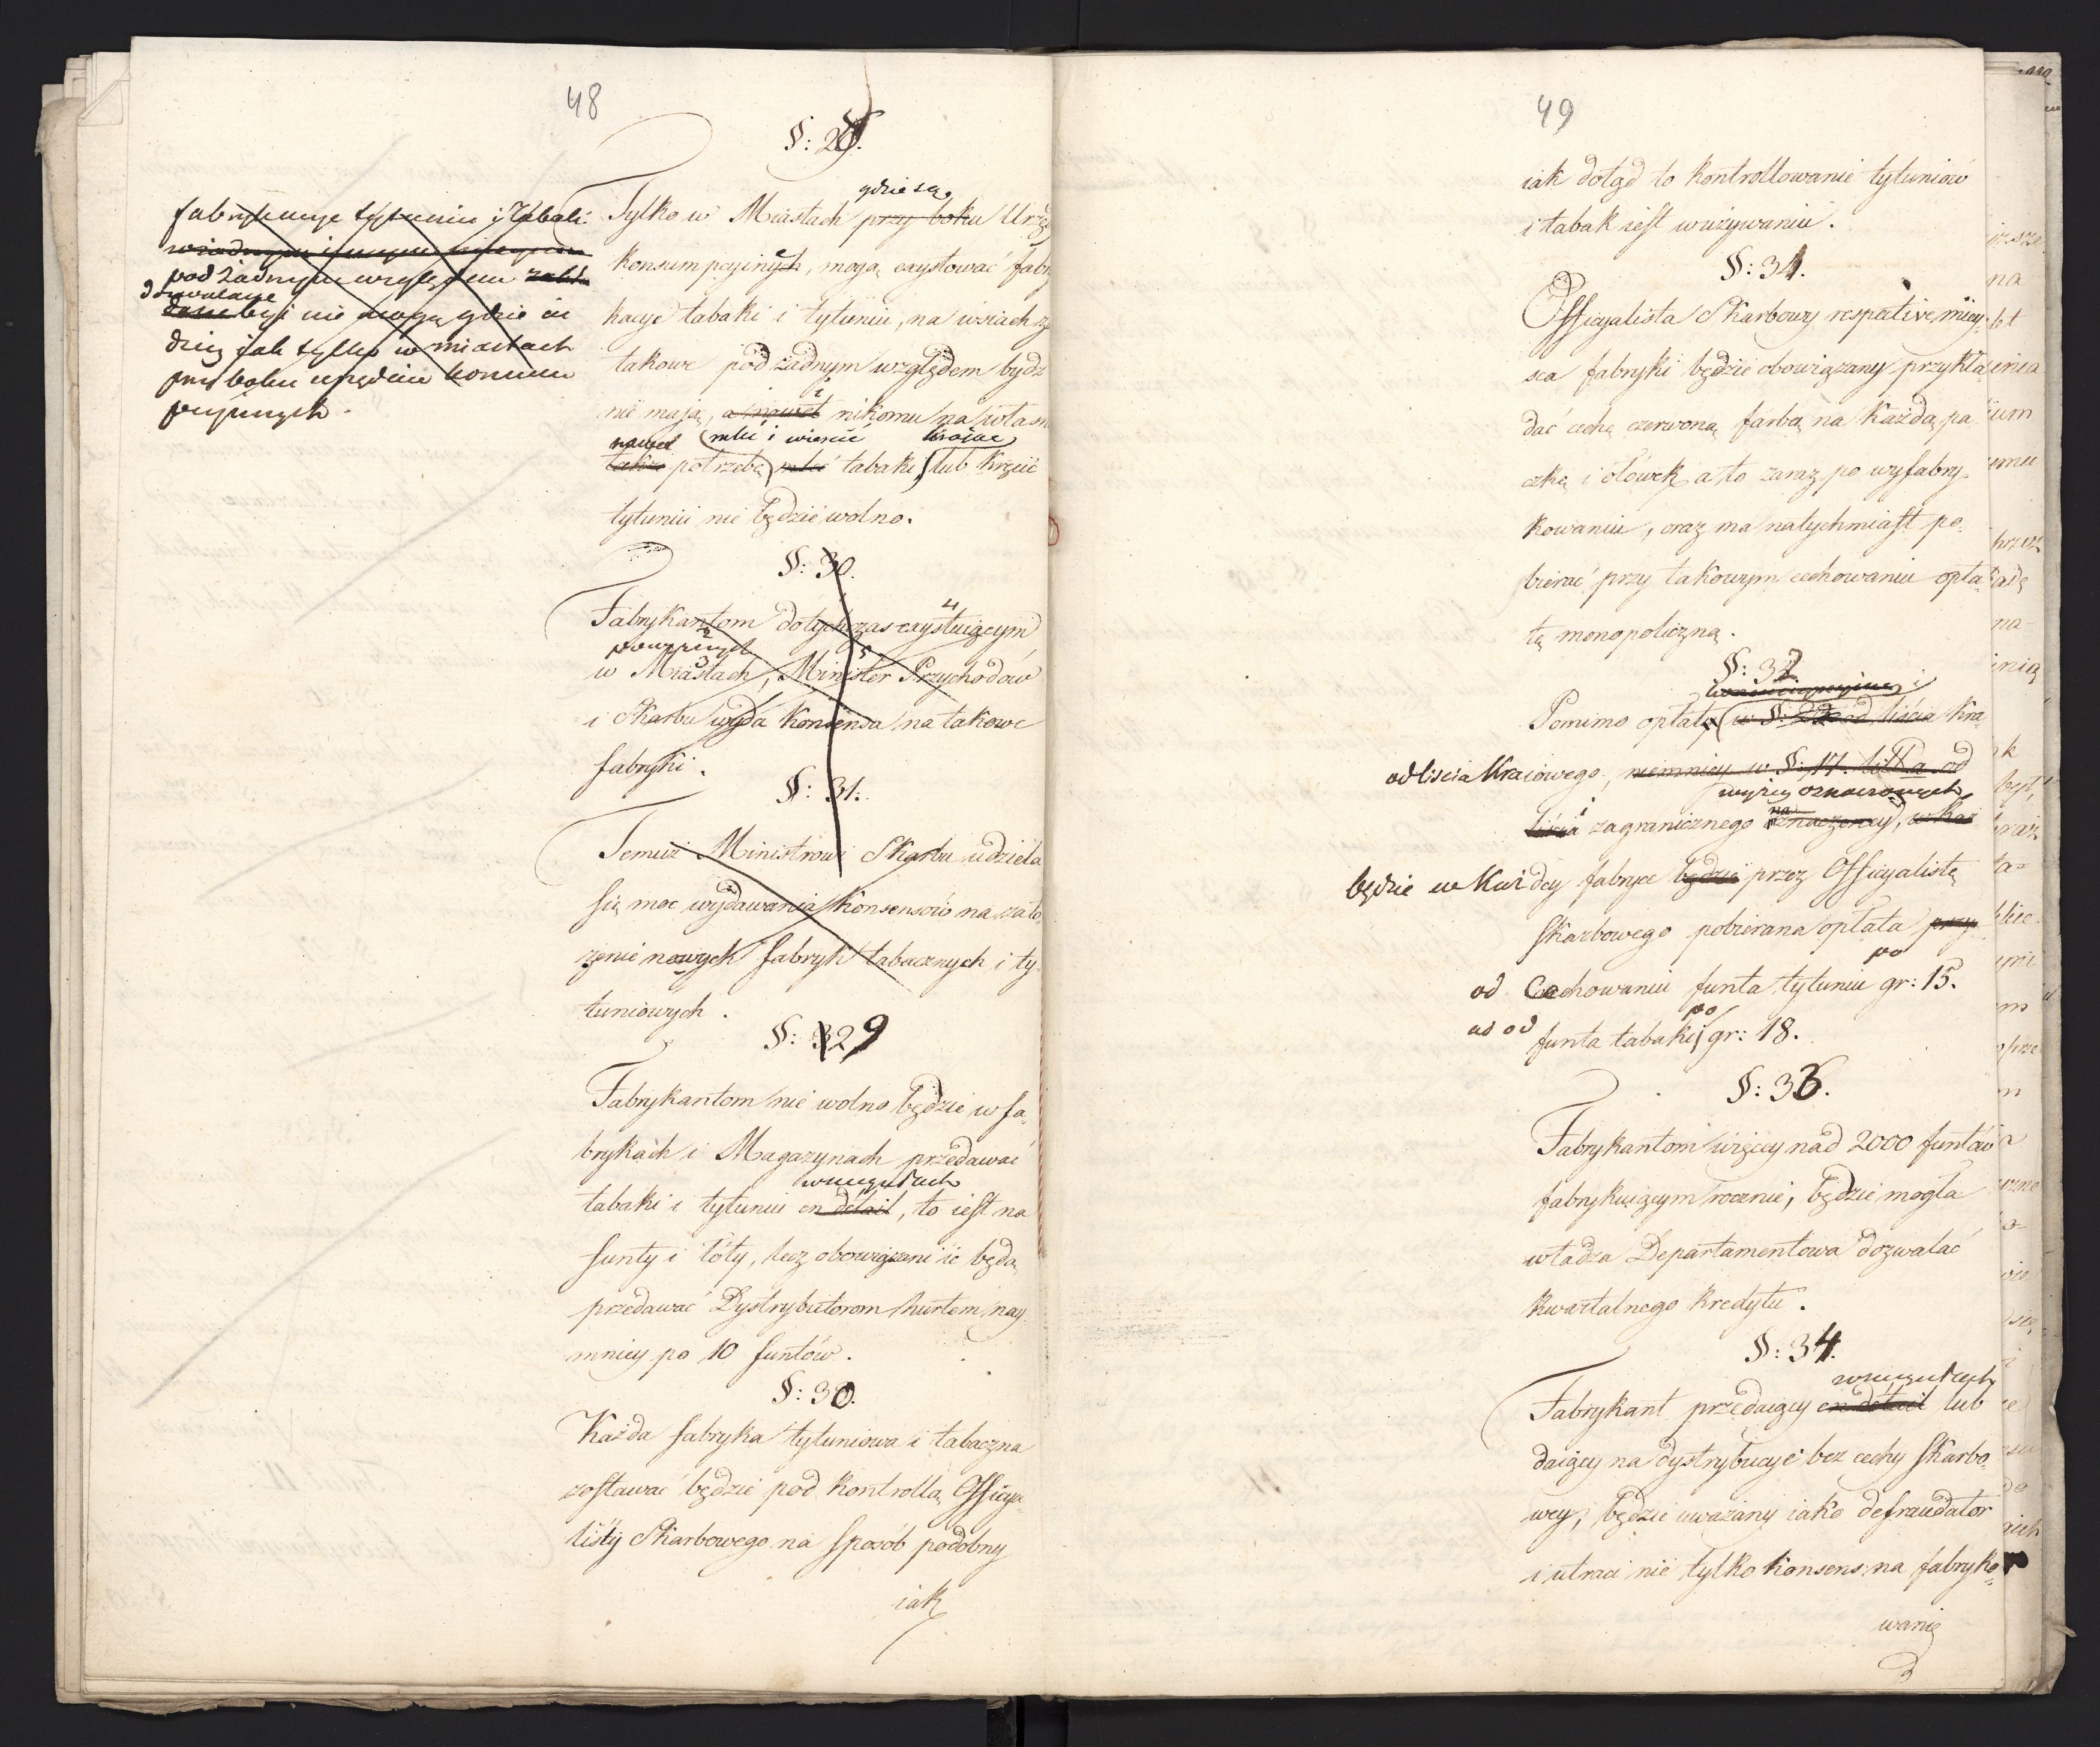 48
§: 28.
fabrykacye tytuniu i tabaki
pod żadnym względem
dozwalane
być nie mogą gdzie in
dziej jak tylko w miastach
przy boku urzędów konsum
pcyjnych.
gdzie są
Tylko w Miastach przy boku Urzę
konsumpcyinych, mogą exystować fabry
kacye tabaki i tytuniu, na wsiach zaś
takowe pod żadnym względem bydź
i
nie mają, a nawet nikomu na własn
nawet mleć i wiercić kraiac
także potrzebę mleć tabaki lub kręcić
tytuniu nie będzie wolno.
§: 30.
Fabrykantom dotychczas exystuiącym
w Miastach, Minister Przychodów
i Skarbu wyda konsensa na takowe
fabryki.
§: 31.
Temuż Ministrowi Skarbu udziela
się moc wydawania konsensów na zało
żenie nowych fabryk tabacznych i ty
tuniowych.
§: 329
Fabrykantom nie wolno będzie w fa-
brykach i Magazynach przedawać
w szczegułach
tabaki i tytuniu en detail, to iest na
funty i łóty, lecz obowiązani ie będą
przedawać Dystrybutorom hurtem nay
mniey po 10 funtów.
§: 30.
Każda fabryka tytuniowa i tabaczna
zostawać będzie pod kontrollą Officya-
listy Skarbowego na sposób podobny
iak
49
iak dotąd to kontrollowanie tytuniów
i tabak iest w używaniu.
§: 31.
Officyalista Skarbowy respective miey-
sca fabryki będzie obowiązany przykła
dać cechę czerwoną farbą na każdą pa
czkę i ołówek, a to zaraz po wyfabry-
kowaniu, oraz ma natychmiast po-
bierać przy takowym cechowaniu opła-
tę monopoliczną.
§: 32.
konsumpcyinej i
Pomimo opłaty w §: od liścia kra-
od liscia kraiowego, niemniey w §: 17. litt a od
wyżey oznaczonych
liścia i zagranicznego naznaczoney, w każ
będzie w każdey fabryce będzie przez Officyalistę
Skarbowego pobierana opłata przy
po
od Cechowaniu funta tytuniu gr: 15.
po
ad od funta tabaki gr: 18.
§: 33.
Fabrykantom więcey nad 2000 funtów
fabrykuiącym rocznie, będzie mogła
władza Departamentowa dozwalać
kwartalnego kredytu.
§: 34.
w szczegułach
Fabrykant przedaiący en détail lub
daiący na dystrybucyę bez cechy Skarbo-
wey, będzie uważany iako defraudator
i utraci nie tylko konsens na fabryko-
wanie